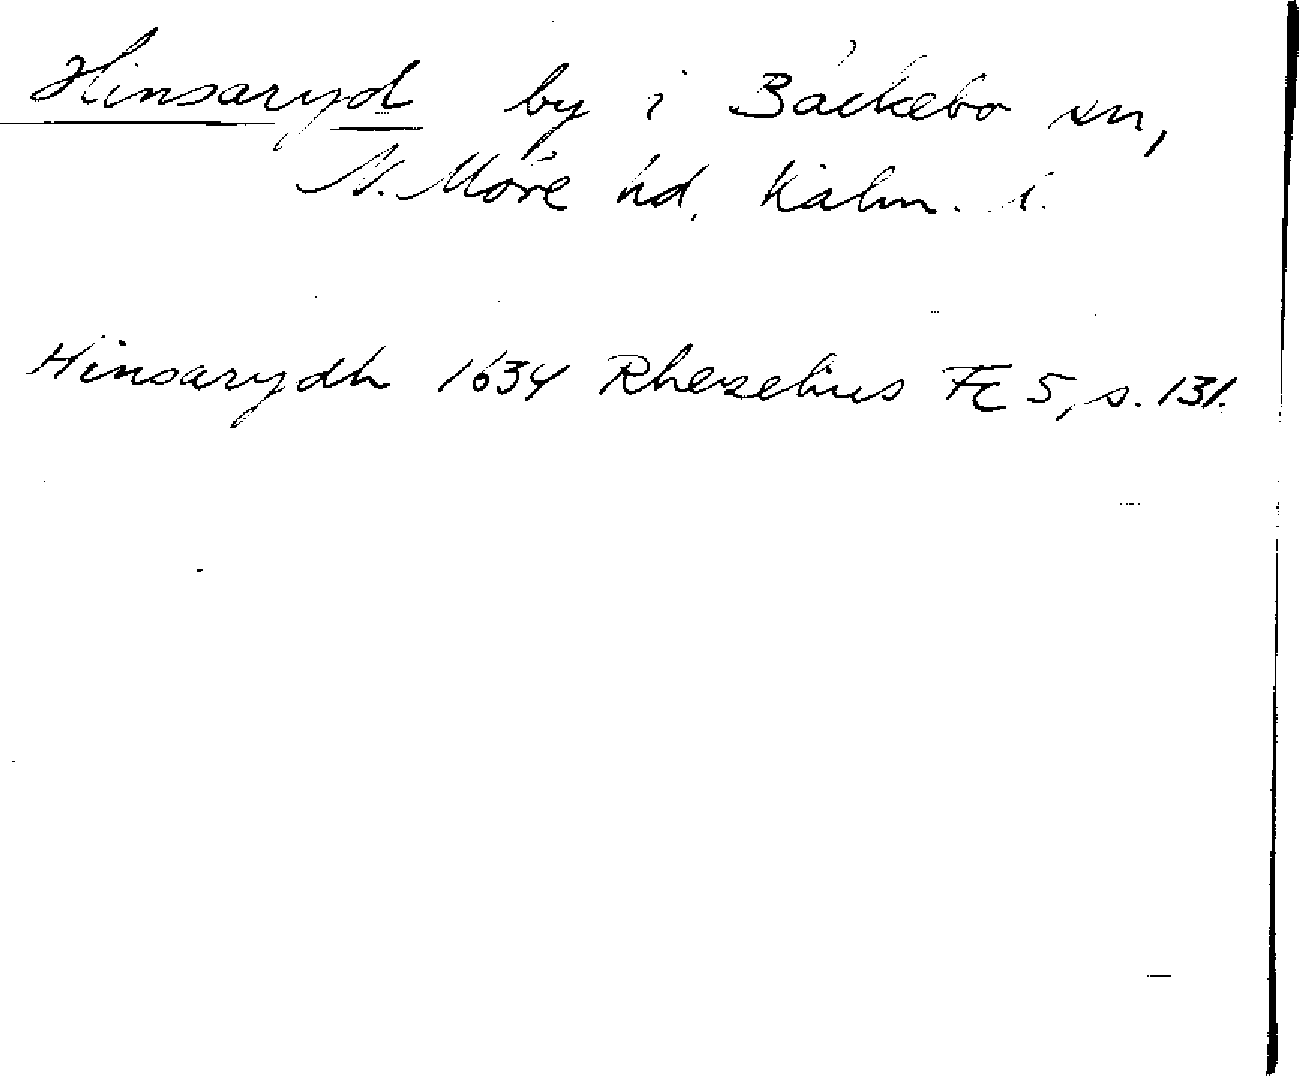 Hinsaryd by i Bäckebo sn,
N. Möre hd. Kalm. l.
Hinsarydh 1634 Rhezelius FC 5, s. 131.